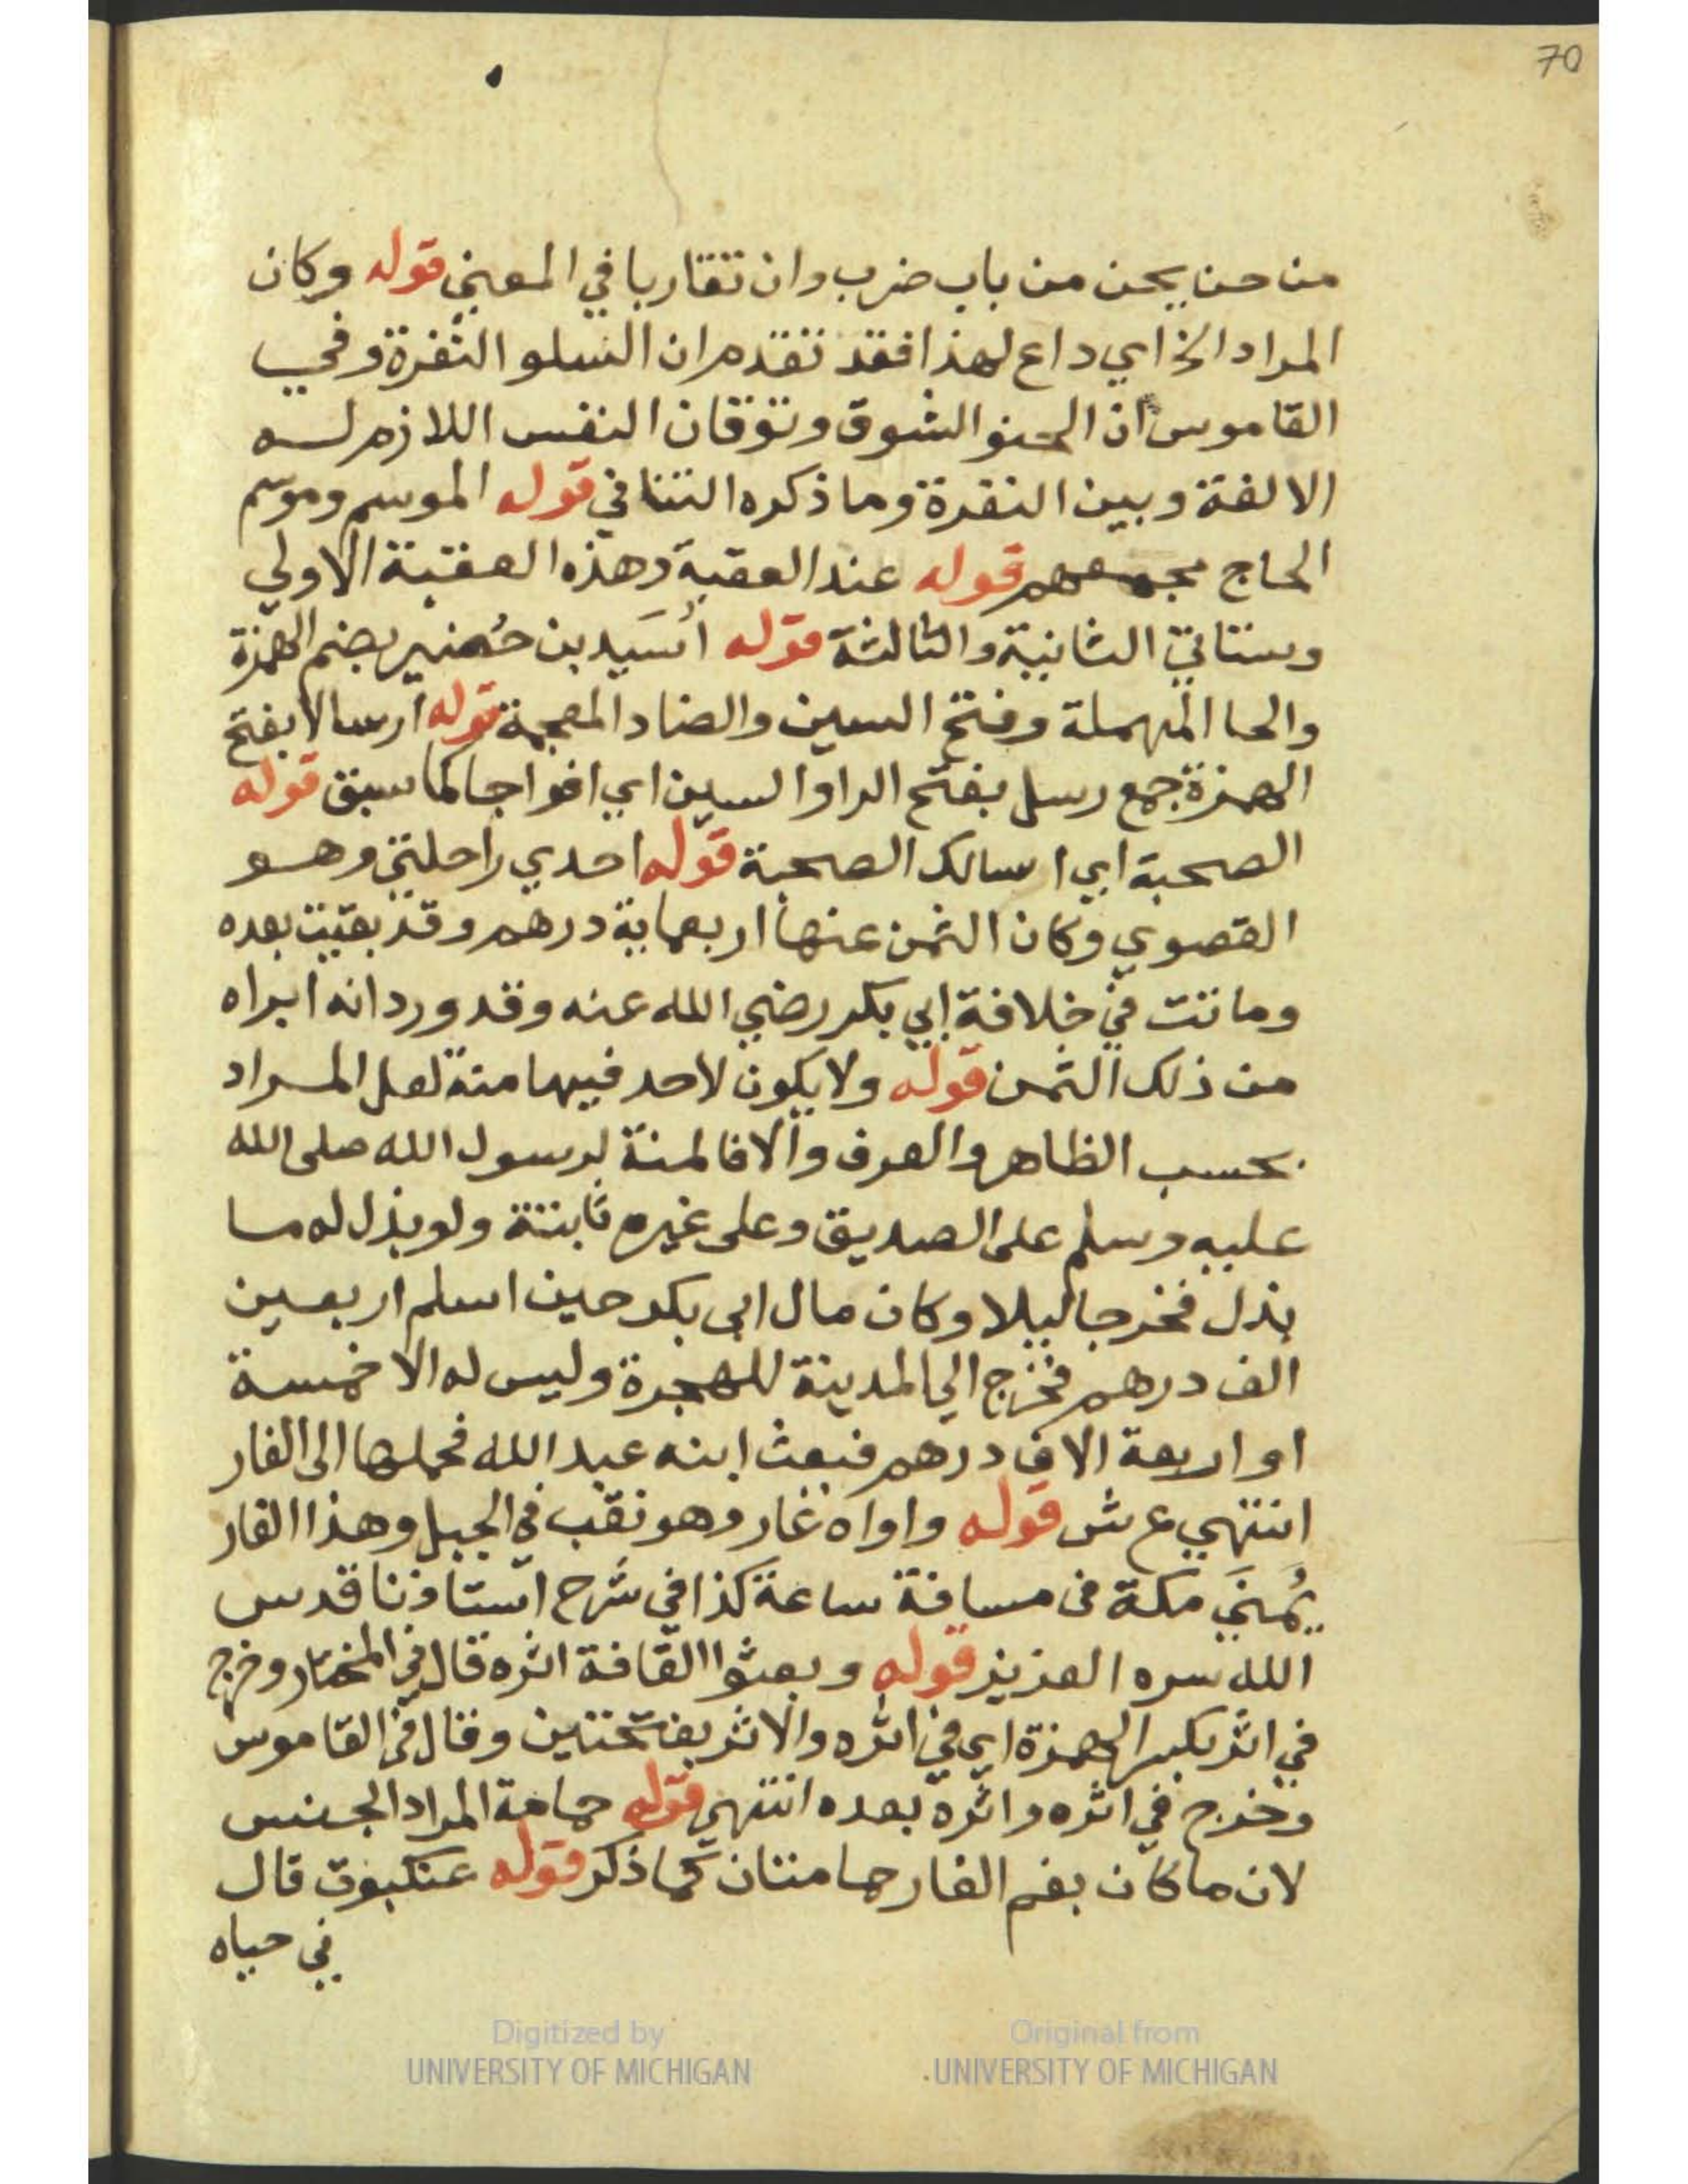 70
من حن يحن من باب ضرب وان تقاربا في المعني قوله وكان
المراد الخ اي داع لهذا فقد تقدم ان السلو النفرة وفي
القاموس ان الحنو الشوق وتوقان النفس اللازم له
الالفة وبين النفرة وما ذكره التنافي قوله الموسم وموسم
الحاج مجمعهم قوله عند العقبة وهذه العقبة الاولي
وستاتي الثانية والثالثة قوله أُسَيد بن حُضير بضم الهمزة
والحا المهملة وفتح السين والضاد المعجمة قوله ارسالا بفتح
الهمزة جمع رسل بفتح الرا والسين اي افواجا كما سبق قوله
الصحبة اي اسالك الصحبة قوله احدي راحلتي وهو
القصوي وكان الثمن عنها اربعماية درهم وقد بقيت بعده
وماتت في خلافة ابي بكر رضي الله عنه وقد ورد انه ابراه
من ذلك الثمن قوله ولا يكون لاحد فيها منة لعل المراد
بحسب الظاهر والعرف والا فالمنة لرسول الله صلى الله
عليه وسلم على الصديق وعلى غيره ثابتة ولو بذل له ما
بذل فخرجا ليلا وكان مال ابى بكر حين اسلم اربعين
الف درهم فخرج الي المدينة للهجرة وليس له الا خمسة
او اربعة الاف درهم فبعث ابنه عبد الله فحملها الى الغار
انتهي ع ش قوله واواه غار وهو نقب في الجبل وهذا الغار
يُمنَي مكة فى مسافة ساعة كذا في شرح استاذنا قدس
الله سره العزيز قوله وبعثوا القافة اثره قال في المختار وخرج
في اثر بكسر الهمزة اي في اثره والاثر بفتحتين وقال في القاموس
وخرج في اثره واثره بعده انتهي قوله حمامة المراد الجنس
لان ما كان بفم الغار حمامتان كما ذكر قوله عنكبوت قال
في حياه
Digitized by
UNIVERSITY OF MICHIGAN
Original from
UNIVERSITY OF MICHIGAN